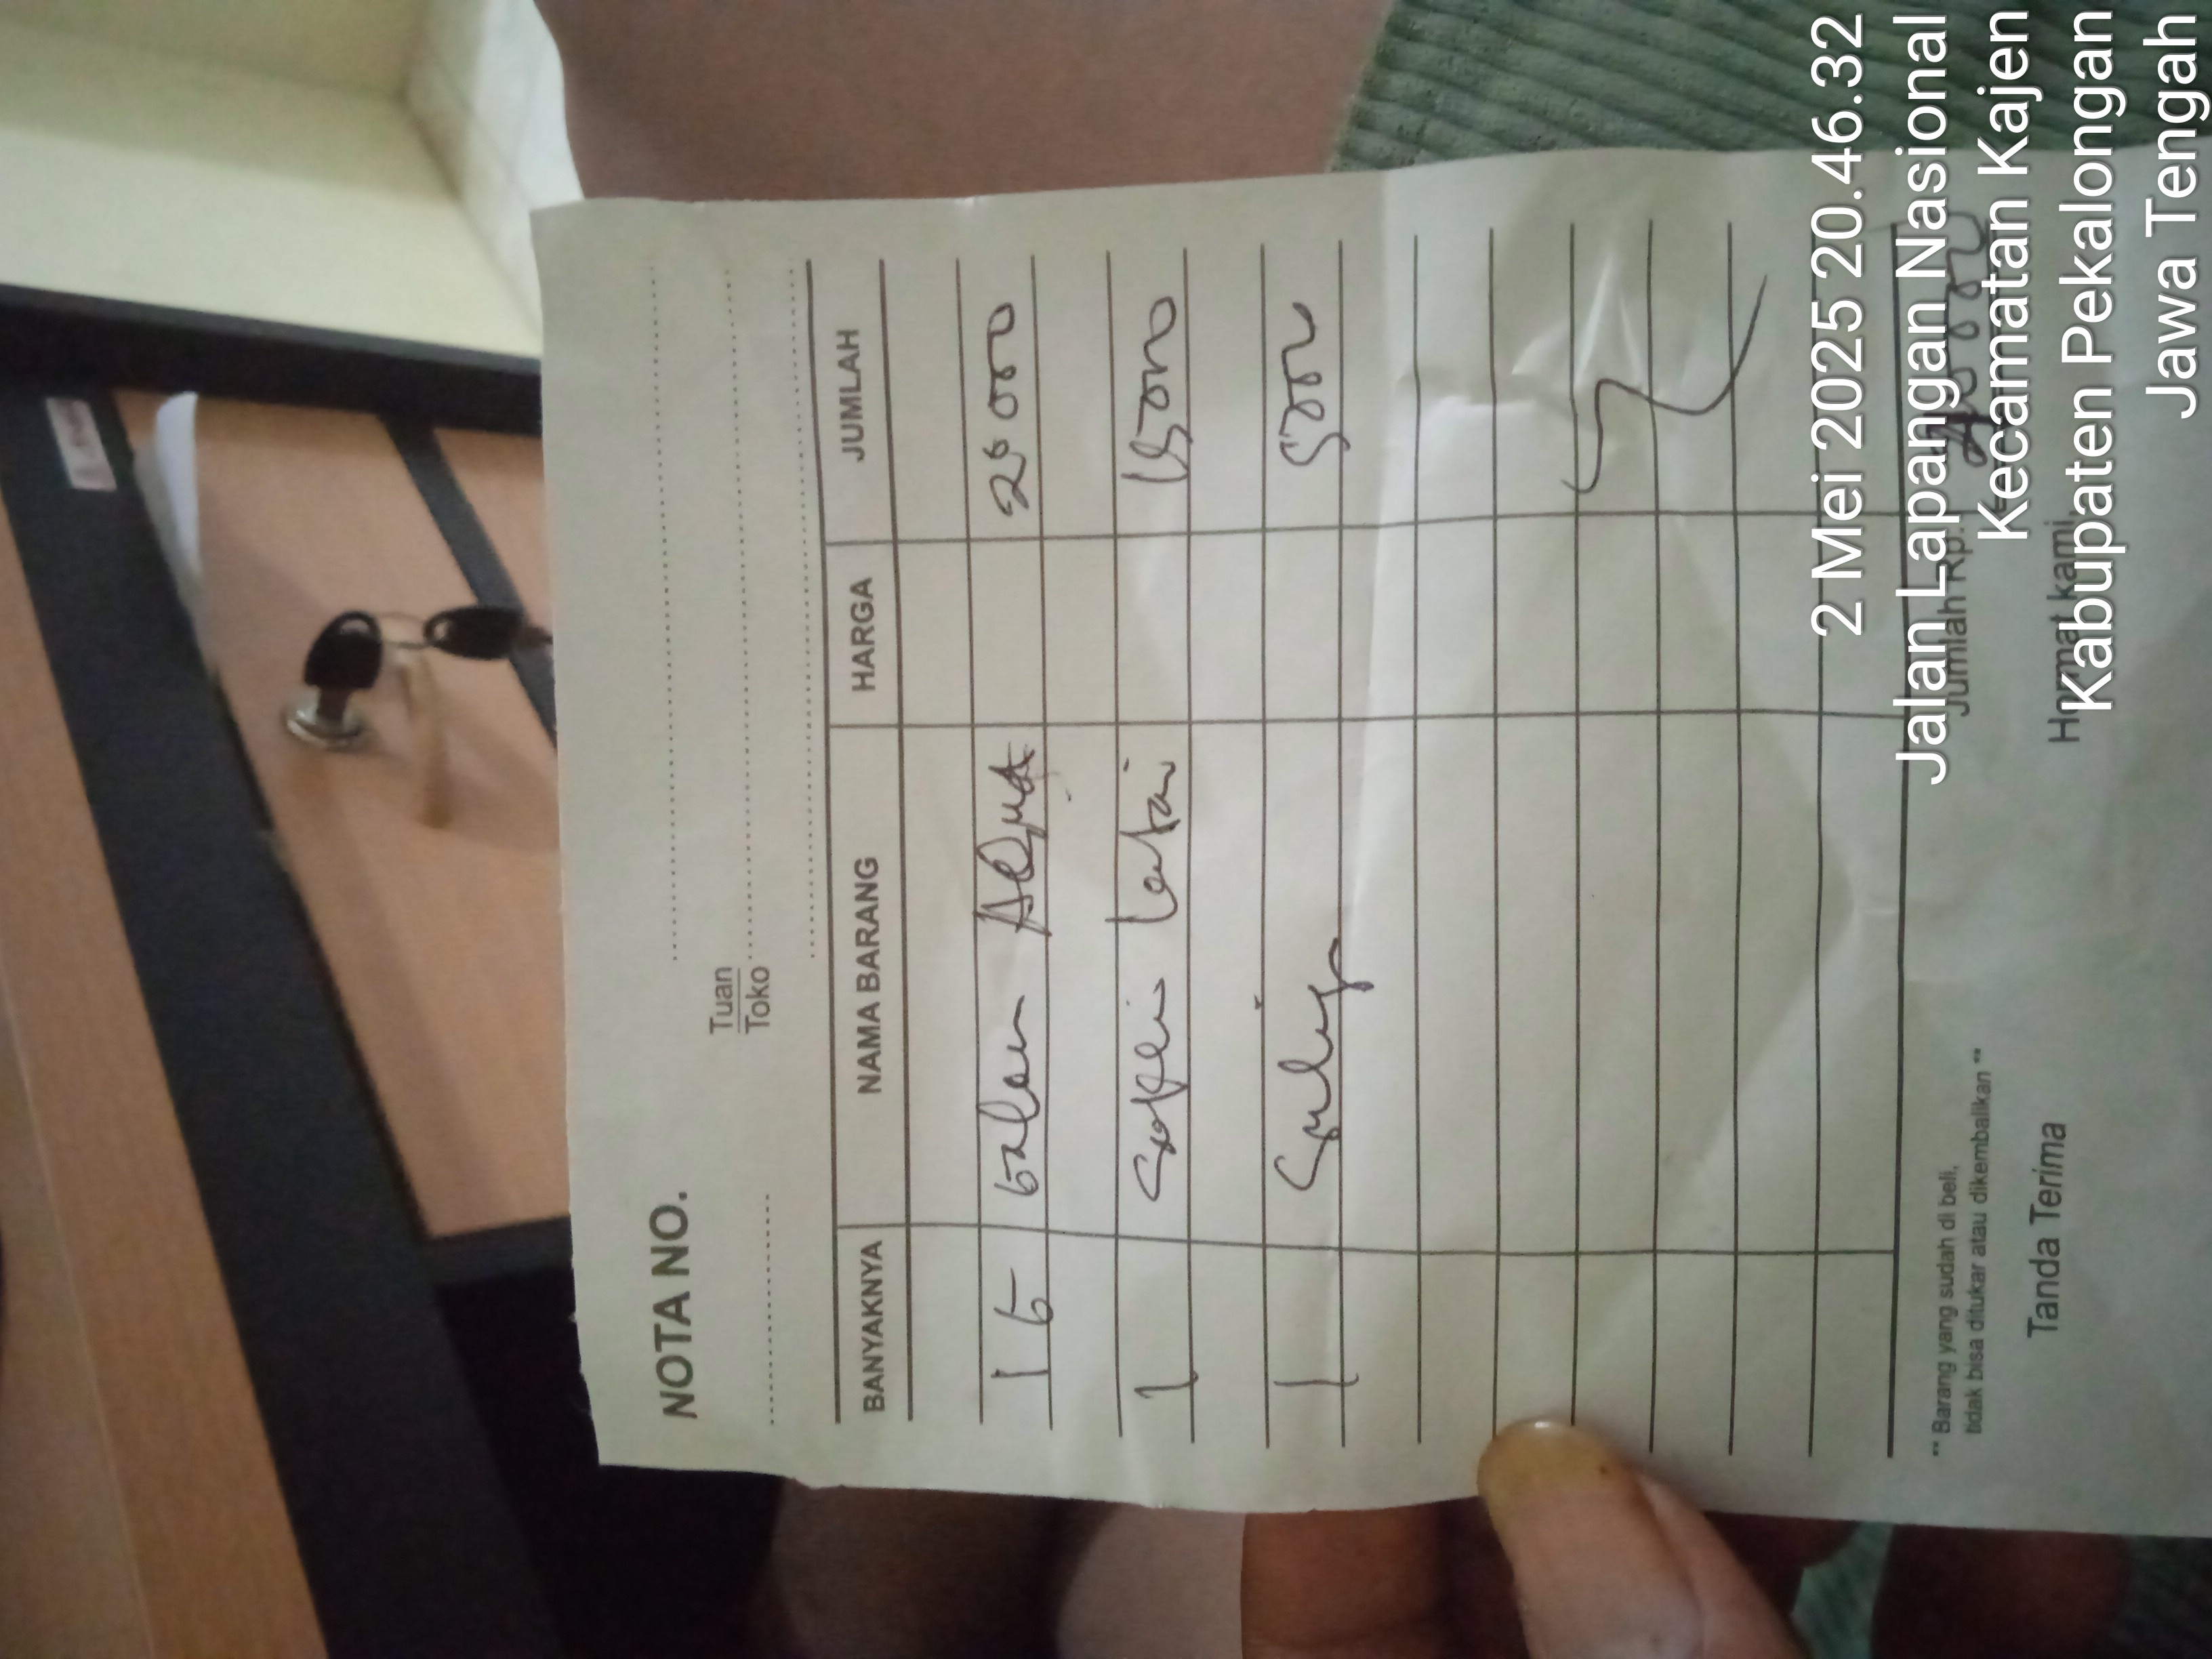 NOTA NO.
Tuan
Toko
BANYAKNYA NAMA BARANG HARGA JUMLAH
1 G Galon AQUA 20 000
1 Soklin lantai 15000
1 5000
** Barang yang sudah di beli,
tidak bisa ditukar atau dikembalikan **
Jumlah Rp. 40000
Tanda Terima
Hormat kami,
2 Mei 2025 20.46.32
Jalan Lapangan Nasional
Kecamatan Kajen
Kabupaten Pekalongan
Jawa Tengah